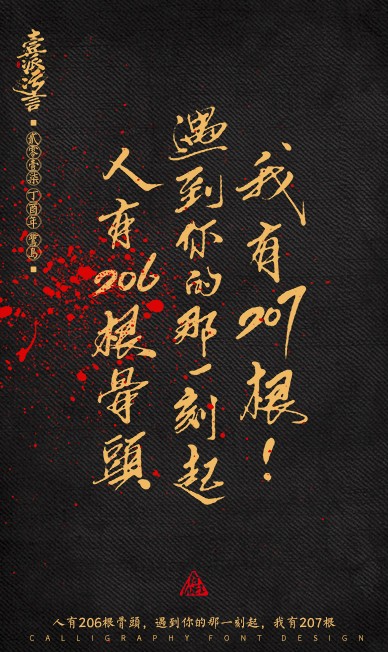 壹派污言
贰零壹柒 丁酉年
人有206根骨頭
遇到你的那一刻起
我有207根!
人有206根骨頭，遇到你的那一刻起，我有207根
CALLIGRAPHY FONT DESIGN